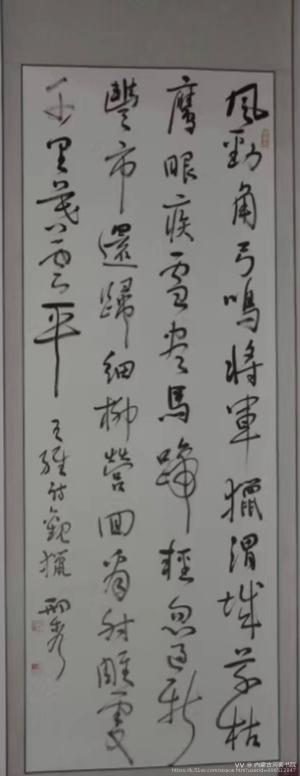 風勁角弓鳴將軍獵渭城草枯
鷹眼疾雪盡馬蹄輕忽過新
豐市還歸細柳營回看射雕處
千里暮雲平 王維詩觀獵
VV @ 内蒙古润素书院